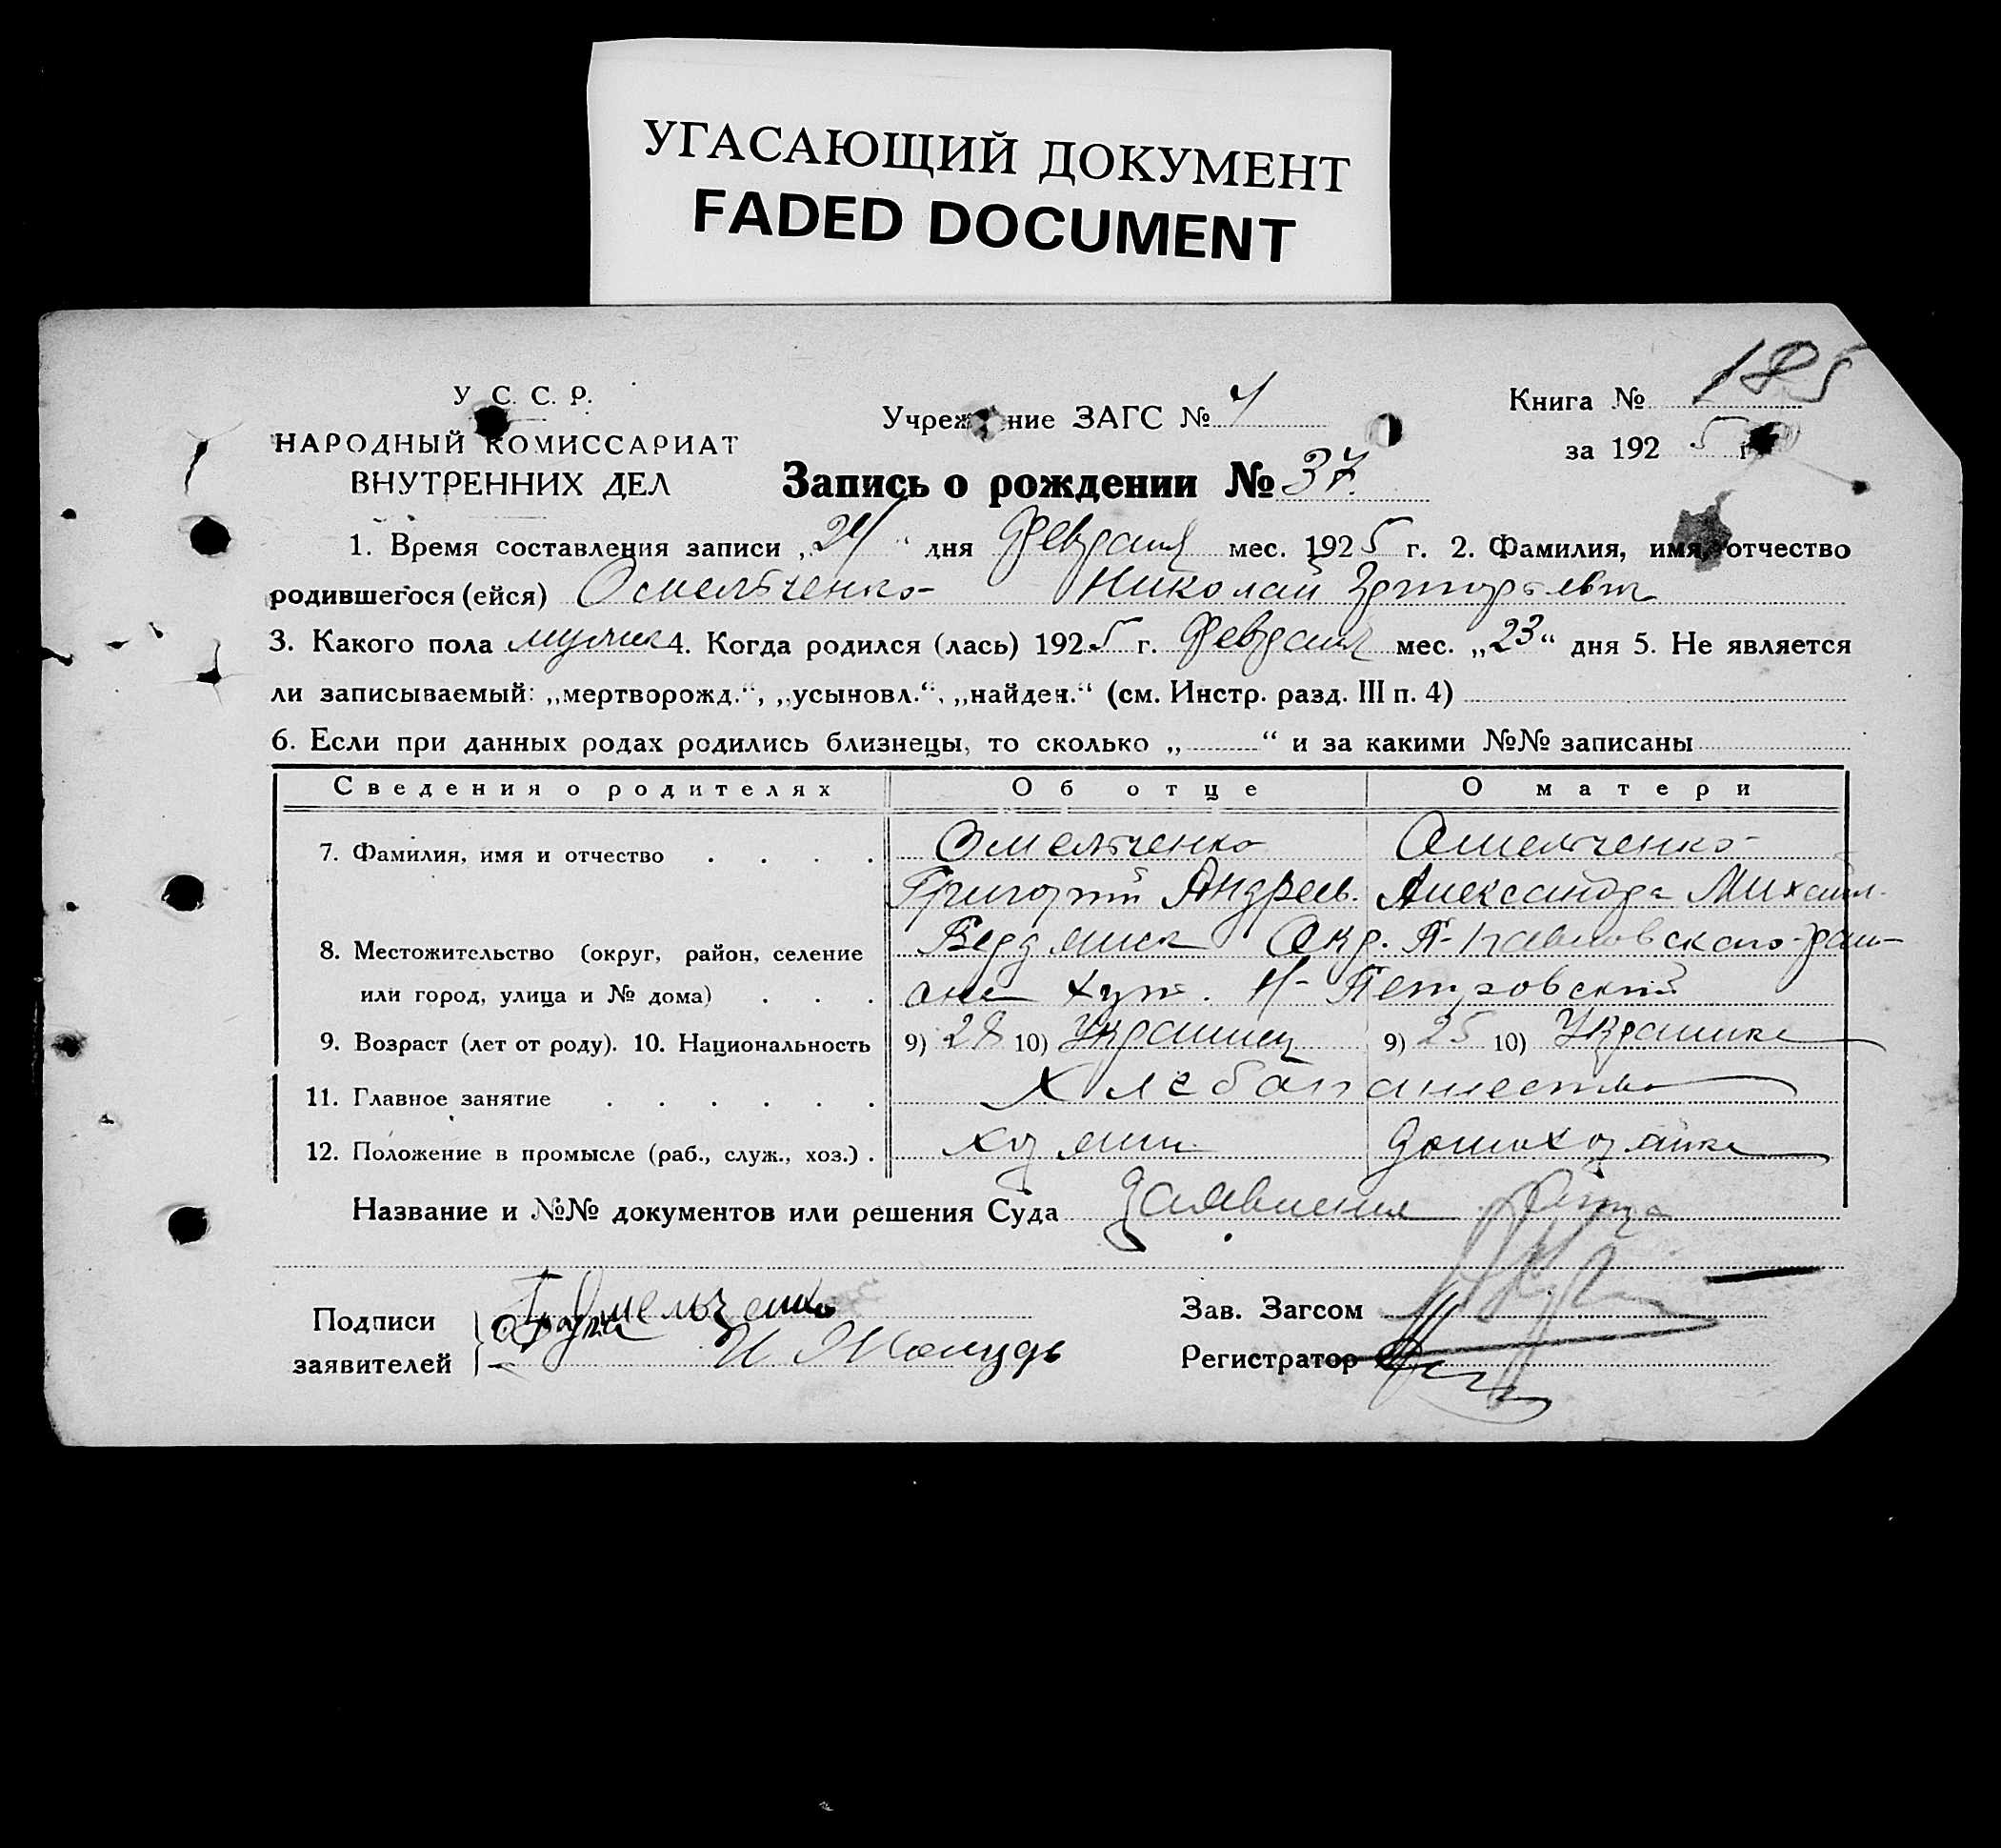 УГАСАЮЩИЙ ДОКУМЕНТ
FADED DOCUMENT
У. С. С. Р.
НАРОДНЫЙ КОМИССАРИАТ
ВНУТРЕННИХ ДЕЛ
Учреждение ЗАГС №
Книга № 185
за 192 5 г.
Запись о рождении № 37.
1. Время составления записи „24“ дня Февраля мес. 1925 г. 2. Фамилия, имя, отчество
родившегося (ейся) Омельченко Николай Григорьевич
3. Какого пола мужск 4. Когда родился (лась) 1925 г. Февраля мес. „23“ дня 5. Не является
ли записываемый: „мертворожд.“, „усыновл.“, „найден.“ (см. Инстр. разд. III п. 4)
6. Если при данных родах родились близнецы, то сколько „ “ и за какими №№ записаны
Сведения о родителях Об отце О матери
7. Фамилия, имя и отчество . . . . Омельченко Омельченко
Григорий Андреев. Александра Михайл.
8. Местожительство (округ, район, селение Бердянск Окр. П-Павловского рай-
или город, улица и № дома) . . . она хут. Н-Петровский
9. Возраст (лет от роду). 10. Национальность 9) 28 10) Украинец 9) 25 10) Украинка
11. Главное занятие . . . . . . Хлебопашество
12. Положение в промысле (раб., служ., хоз.) . хозяин домохозяйка
Название и №№ документов или решения Суда Заявления Отца
Подписи Г Омельченко Зав. Загсом
заявителей Регистратор